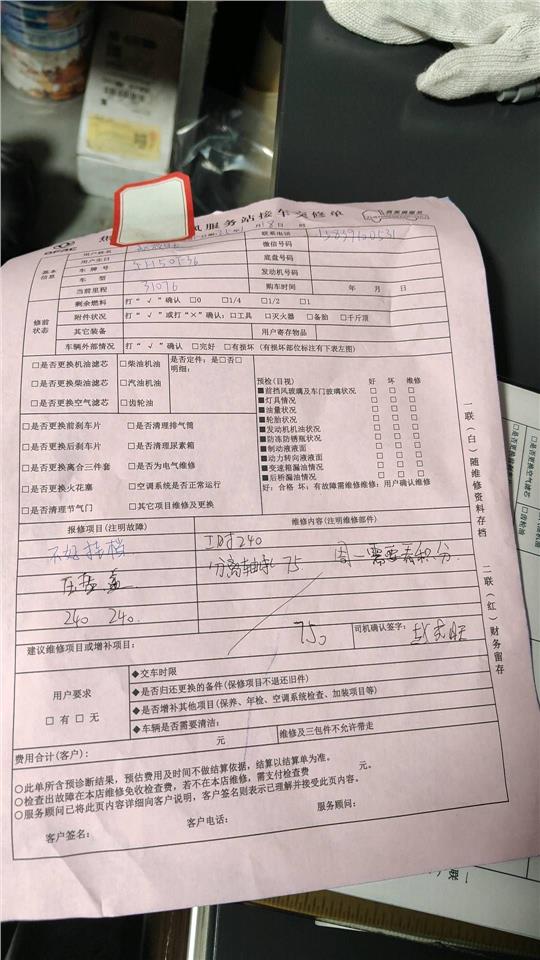 风服务站接车交修单
DFAC
月18日 时
基本信息
用户姓名
联系电话
15839100531
用户生日
微信号码
车牌号
底盘号码
车型
发动机号码
当前里程 31076
购车时间 年 月 日
修前状态
剩余燃料 打“√”确认 □0 □1/4 □1/2 □1
附件状况 打“√”或打“×”确认：□工具 □灭火器 □备胎 □千斤顶
其它装备
用户寄存物品
车辆外部情况 打“√”确认 □完好 □有损坏（有损坏部位标注有下表左图）
□是否更换机油滤芯 □柴油机油
□是否更换柴油滤芯 □汽油机油
□是否更换空气滤芯 □齿轮油
是否定件：是□否□
明细：
□是否更换前刹车片 □是否清理排气筒
□是否更换后刹车片 □是否清理尿素箱
□是否更换离合三件套 □是否为电气维修
□是否更换火花塞 □空调系统是否正常运行
□是否清理节气门 □其它项目维修及更换
预检(目视) 好 坏 维修
■前挡风玻璃及车门玻璃状况 □ □ □
■灯具情况 □ □ □
■油量状况 □ □ □
■轮胎状况 □ □ □
■发动机机油状况 □ □ □
■防冻防锈瓶状况 □ □ □
■制动液液面 □ □ □
■动力转向液液面 □ □ □
■变速箱漏油情况 □ □ □
■后桥漏油情况 □ □ □
好：合格 坏：有故障需维修维修：用户确认维修
报修项目(注明故障)
维修内容(注明维修部件)
不好挂档
工时240
压盘盖
分离轴承 75
周一需要看积分
240 240
750
司机确认签字：
建议维修项目或增补项目：
用户要求
□有 □无
◆交车时限
◆是否归还更换的备件(保修项目不退还旧件)
◆是否增补其他项目(保养、年检、空调系统检查、加装项目等)
◆车辆是否需要清洁：
费用合计(客户)： 元
维修及三包件不允许带走
○此单所含预诊断结果，预估费用及时间不做结算依据，结算以结算单为准。
○检查出故障在本店维修免收检查费，若不在本店维修，需支付检查费 元。
○服务顾问已将此页内容详细向客户说明，客户签名则表示已理解并接受此页内容。
客户签名：
客户电话：
服务顾问：
一联(白)随维修资料存档
二联(红)财务留存